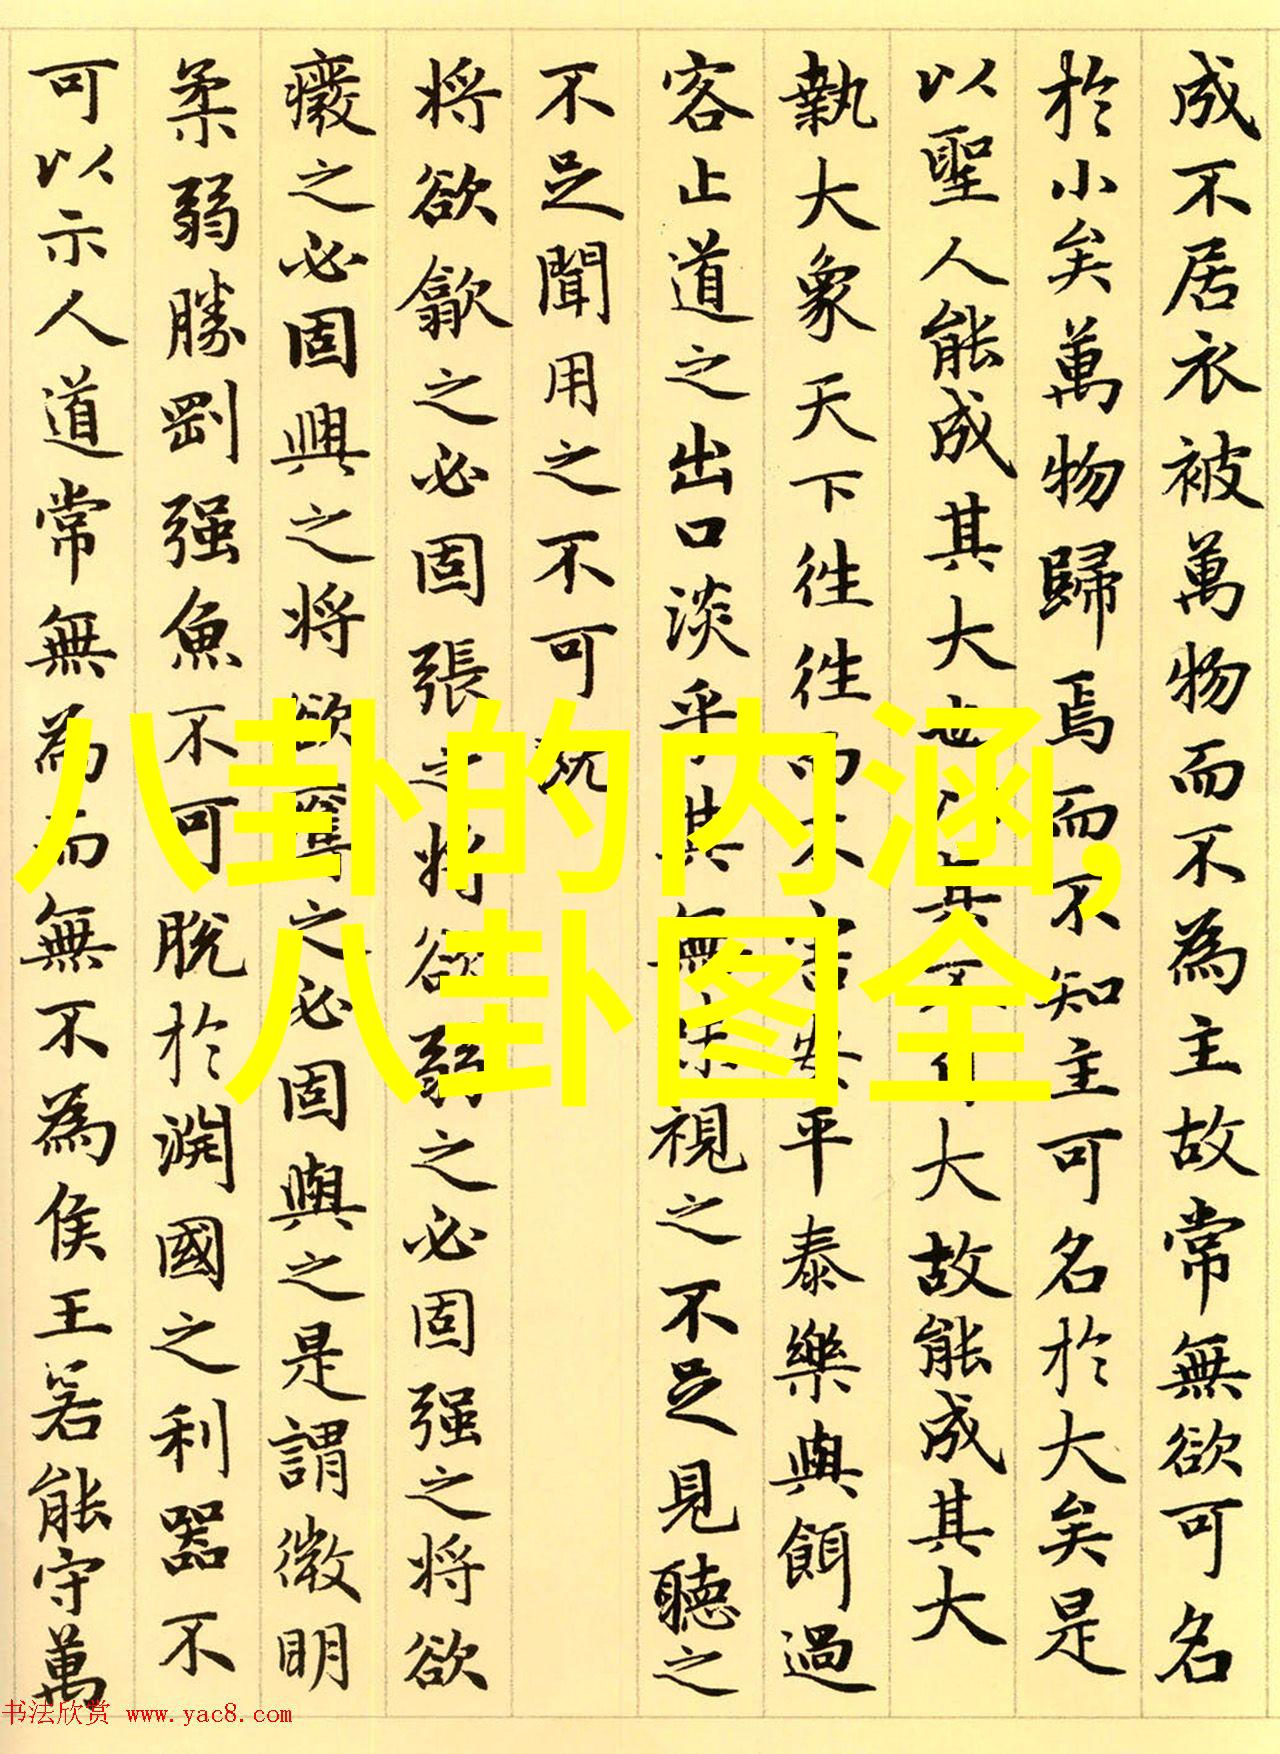 成不居衣被萬物而不為主故常無欲可名
於小矣萬物歸焉而不知主可名於大矣是
以聖人能成其大也以其不自大故能成其大
執大象天下往往而不害安平泰樂與餌過
客止道之出口淡乎其無味視之不足見聽之
不足聞用之不可既
将欲歙之必固張之将欲弱之必固强之将欲
癈之必固興之将欲奪之必固與之是謂微明
柔弱勝剛强魚不可脫於淵國之利器不
可以示人道常無為而無不為侯王若能守萬
八卦的内涵,
八卦图全
书法欣赏 www.yac8.com